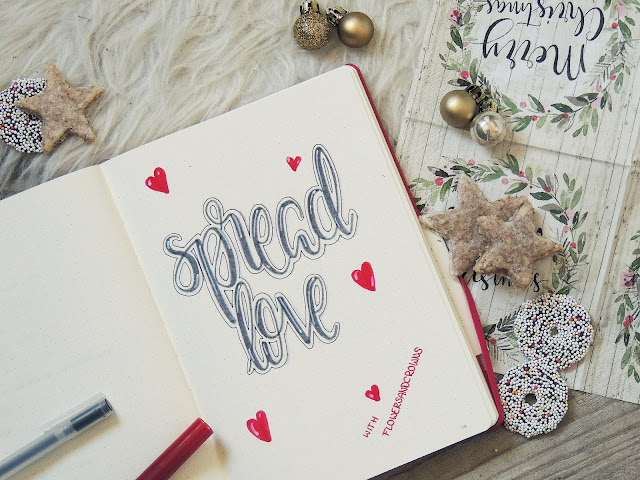 spread
love
WITH
FLOWERSANDCROWNS
Merry
Christmas